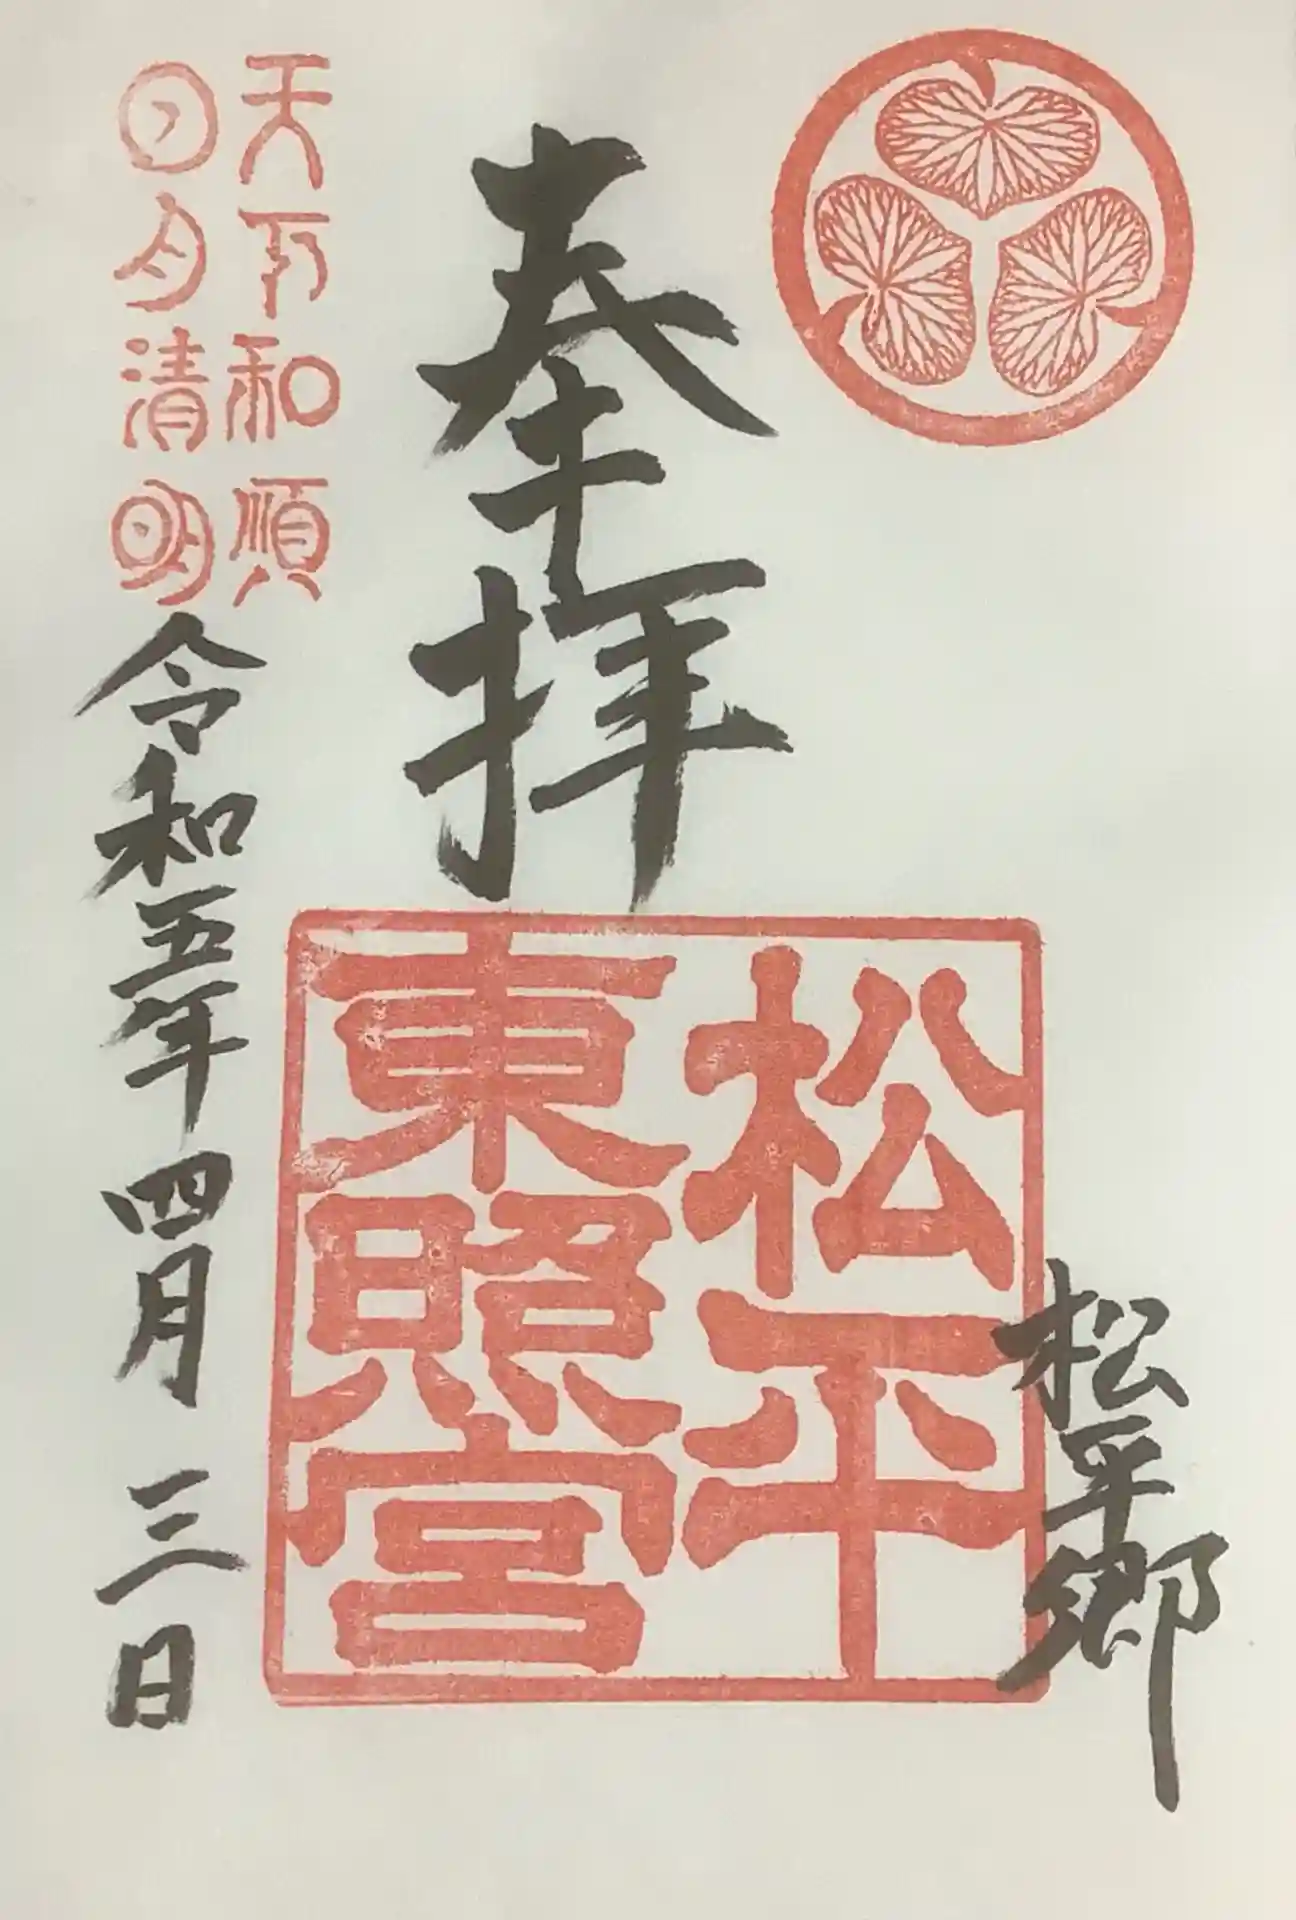 松平郷
奉拝
松平
東照宮
天下和順
日月清明
令和五年四月三日